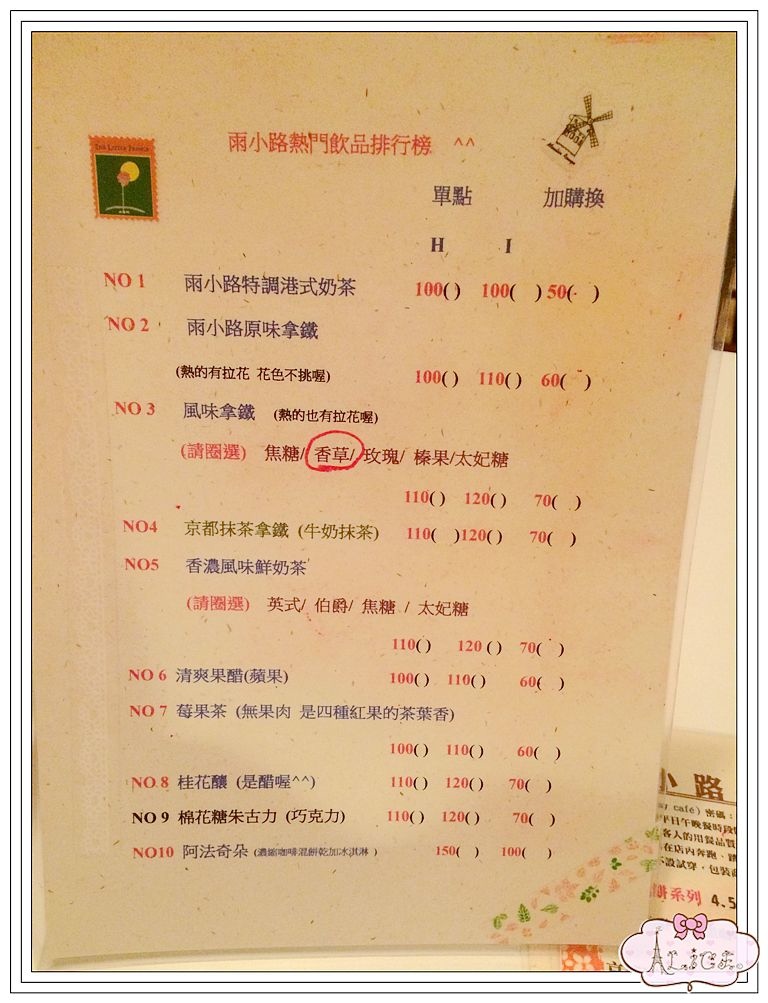 THE LITTLE PRINCE
雨小路熱門飲品排行榜 ^^
單點 加購換
H I
NO 1 雨小路特調港式奶茶 100( ) 100( ) 50( )
NO 2 雨小路原味拿鐵
(熱的有拉花 花色不挑喔) 100( ) 110( ) 60( )
NO 3 風味拿鐵 (熱的也有拉花喔)
(請圈選) 焦糖/ 香草/ 玫瑰/ 榛果/太妃糖
110( ) 120( ) 70( )
NO4 京都抹茶拿鐵 (牛奶抹茶) 110( )120( ) 70( )
NO5 香濃風味鮮奶茶
(請圈選) 英式/ 伯爵/ 焦糖 / 太妃糖
110( ) 120 ( ) 70( )
NO 6 清爽果醋(蘋果) 100( ) 110( ) 60( )
NO 7 莓果茶 (無果肉 是四種紅果的茶葉香)
100( ) 110( ) 60( )
NO 8 桂花釀 (是醋喔^^) 110( ) 120( ) 70( )
NO 9 棉花糖朱古力 (巧克力) 110( ) 120( ) 70( )
NO10 阿法奇朵 (濃縮咖啡混餅乾加冰淇淋 ) 150( ) 100( )
小路
café) 密碼:
平日午晚餐時段
客人的用餐品質
在店內奔跑
試穿,包裝
系列 4.5
ALICE.